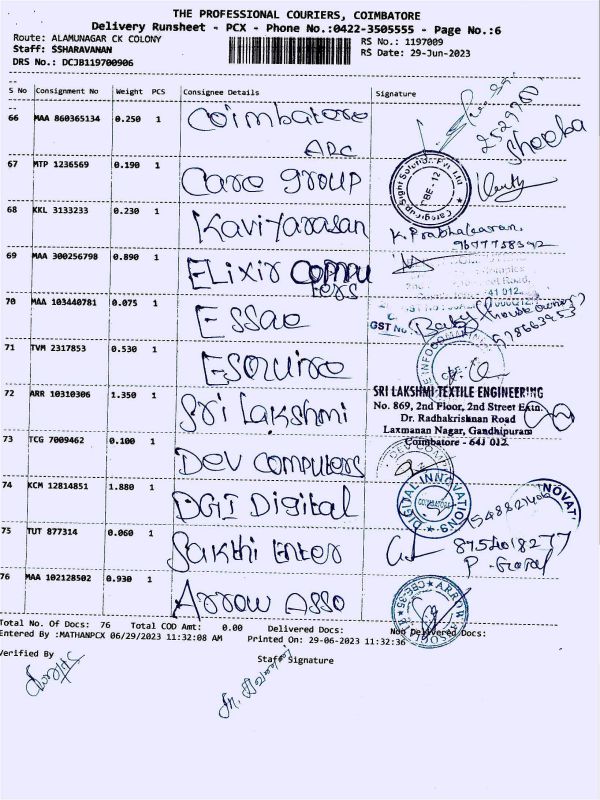 THE PROFESSIONAL COURIERS, COIMBATORE
Delivery Runsheet - PCX - Phone No.:0422-3505555 - Page No.:6
Route: ALAMUNAGAR CK COLONY
RS No.: 1197009
Staff: SSHARAVANAN
RS Date: 29-Jun-2023
DRS No.: DCJB119700906
S No Consignment No Weight PCS Consignee Details Signature
66 MAA 860365134 0.250 1 Coimbatore
ADC
Sheeba
67 MTP 1236569 0.190 1 Care group
68 KKL 3133233 0.230 1 Kaviyarasan
K. Prabhakaran
9677758392
69 MAA 300256798 0.890 1 Elixir Compu
ters
70 MAA 103440781 0.075 1 Essae
GST No
Baby (house owner)
71 TVM 2317853 0.530 1 Esquire
72 ARR 10310306 1.350 1 Sri Lakshmi
SRI LAKSHMI TEXTILE ENGINEERING
No. 869, 2nd Floor, 2nd Street Extn.
Dr. Radhakrishnan Road
Laxmanan Nagar, Gandhipuram
Coimbatore - 641 012
73 TCG 7009462 0.100 1 Dev Computers
DEV COMP
74 KCM 12814851 1.880 1 DGI Digital
DIGITAL INNOVATIONS
COIMBATORE
NOVAT
75 TUT 877314 0.060 1 Sakthi Enter
8754018277
76 MAA 102128502 0.930 1 Arrow Asso
Total No. Of Docs: 76 Total COD Amt: 0.00 Delivered Docs: Non Delivered Docs:
Entered By :MATHANPCX 06/29/2023 11:32:08 AM Printed On: 29-06-2023 11:32:36
Verified By
Staff Signature